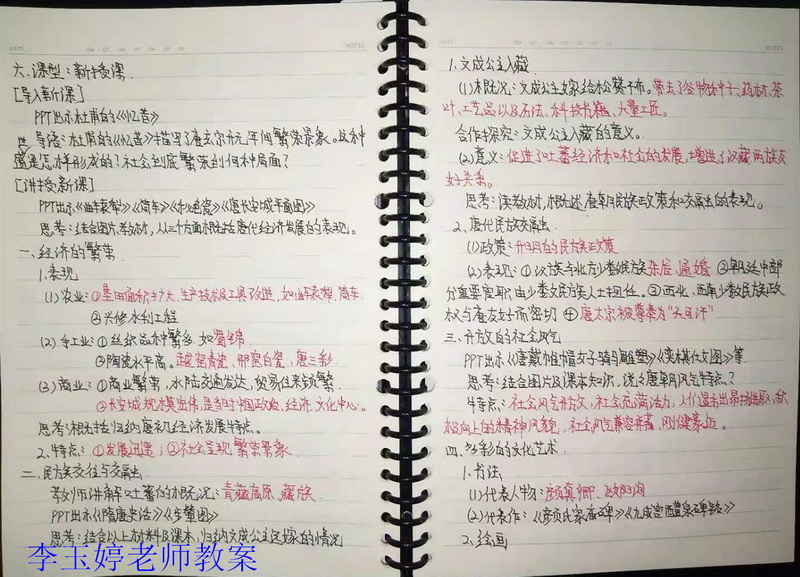 六. 课型:新授课
[导入新课]
PPT出示杜甫的《忆昔》
导语:杜甫的《忆昔》描写了唐玄宗开元年间繁荣景象。这种
盛是怎样形成的?社会到底繁荣到何种局面?
[讲授新课]
PPT出示《曲辕犁》《筒车》《秘色瓷》《唐长安城平面图》
思考:结合图片、教材,从三个方面概括唐代经济发展的表现。
一、经济的繁荣
1.表现
(1)农业:①垦田面积扩大、生产技术及工具改进,如曲辕犁、筒车
②兴修水利工程
(2)手工业:①丝织品种繁多,如蜀锦
②陶瓷水平高。越窑青瓷、邢窑白瓷、唐三彩
(3)商业:①商业繁荣,水陆交通发达,贸易往来频繁
②长安城规模宏伟,是当时中国政治、经济、文化中心。
思考:概括归纳唐初经济发展特点。
2.特点:①发展迅速;②社会呈现繁荣景象
二.民族交往与交融
教师讲解吐蕃的概况:青藏高原、藏族
PPT出示《隋唐史话》《步辇图》
思考:结合以上材料及课本,归纳文成公主远嫁的情况
李玉婷老师教案
1.文成公主入藏
(1)概况:文成公主嫁给松赞干布。带去了谷物种子、药材、茶
叶、工艺品以及历法、科技书籍、大量工匠。
合作探究:文成公主入藏的意义。
(2)意义:促进了吐蕃经济和社会的发展,增进了汉藏两族友
好关系。
思考:读教材,概述唐朝民族政策和交融的表现。
2.唐代民族交融
(1)政策:开明的民族政策
(2)表现:①汉族与北方少数民族杂居、通婚 ②朝廷中部
分重要官职由少数民族人士担任。③西北、西南少数民族政
权与唐友好而密切 ④唐太宗被尊奉为"天可汗"
三.开放的社会风气
PPT出示《唐戴帷帽女子骑马雕塑》《奕棋仕女图》等
思考:结合图片及课本知识,谈谈唐朝风气特点?
特点:社会风气开放,社会充满活力,人们显示出昂扬进取、积
极向上的精神风貌,社会风气兼容并蓄,刚健豪迈。
四.多彩的文化艺术
1.书法
(1)代表人物:颜真卿、欧阳询
(2)代表作:《颜氏家庙碑》《九成宫醴泉碑铭》
2.绘画